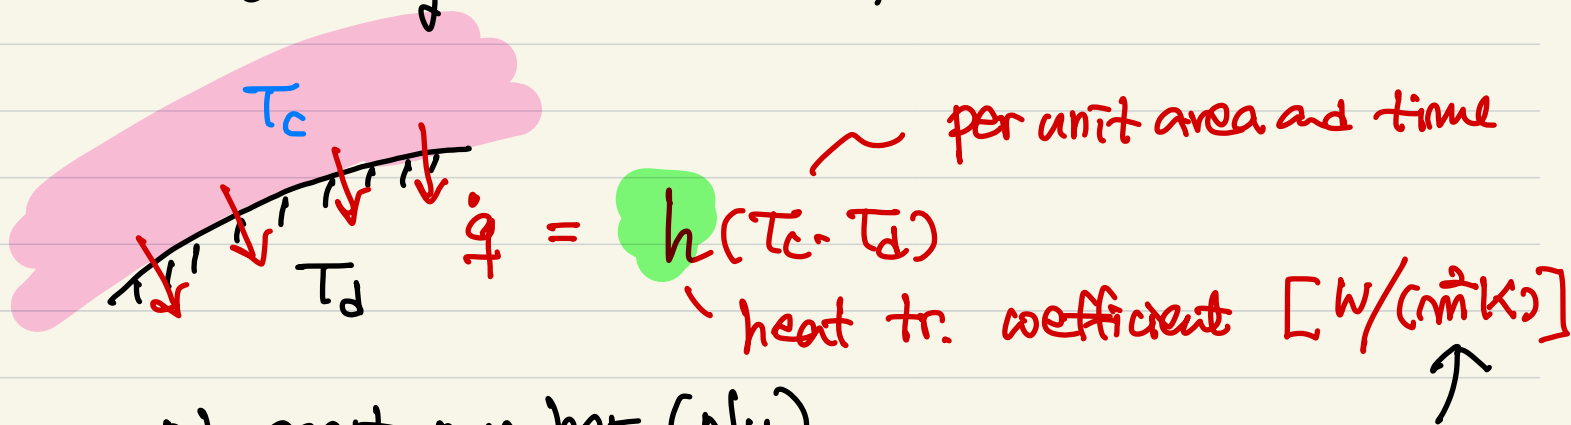 Tc
per unit area and time
q̇ = h (Tc - Td)
Td
heat tr. coefficient [W/(m²K)]
(Nu)